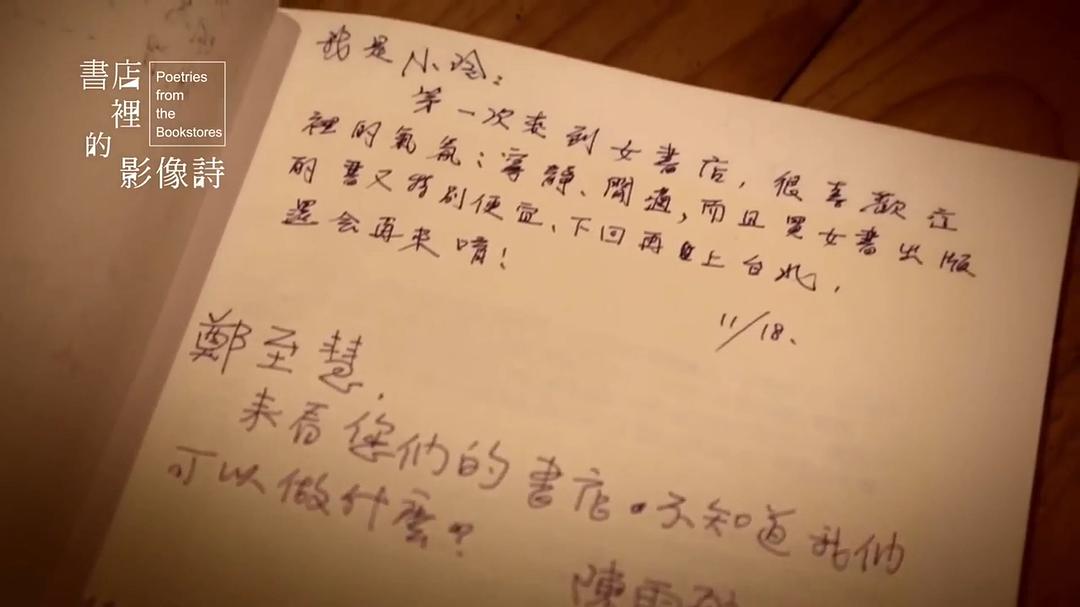 書店
裡
的
影像詩
Poetries
from
the
Bookstores
我是小玲：
第一次來到女書店，很喜歡這
裡的氣氛：寧靜、閒適，而且買女書出版
的書又特別便宜、下回再上台北，
還會再來唷！
11/18、
鄭至慧，
來看您們的書店。不知道我們
可以做什麼？
陳雪